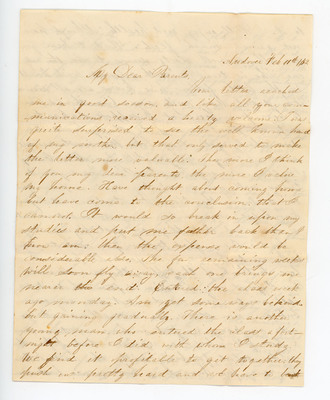 Andover Feb 11th
My Dear Parents
Your letter reached
me in good season and like all your com-
munications received a hearty welcome I was
quite surprised to see the well known hand
of my mother but that only served to make
the letter more valuable: the more I think
of you my dear parents the more I value
my home. Have thought about coming home
but have come to the conclusion that I
cannot. It would so break in upon my
studies and put me farther back than I
now am, then the expense would be
considerable also. The few remaining weeks
will soon fly away each one brings me
nearer the end. Entered the class week
ago monday. Am yet some ways behind
but gaining gradually. There is another
young man who entered the class a fort-
night before I did, with whom I study.
We find it profitable to get together
push us pretty hard and it have to